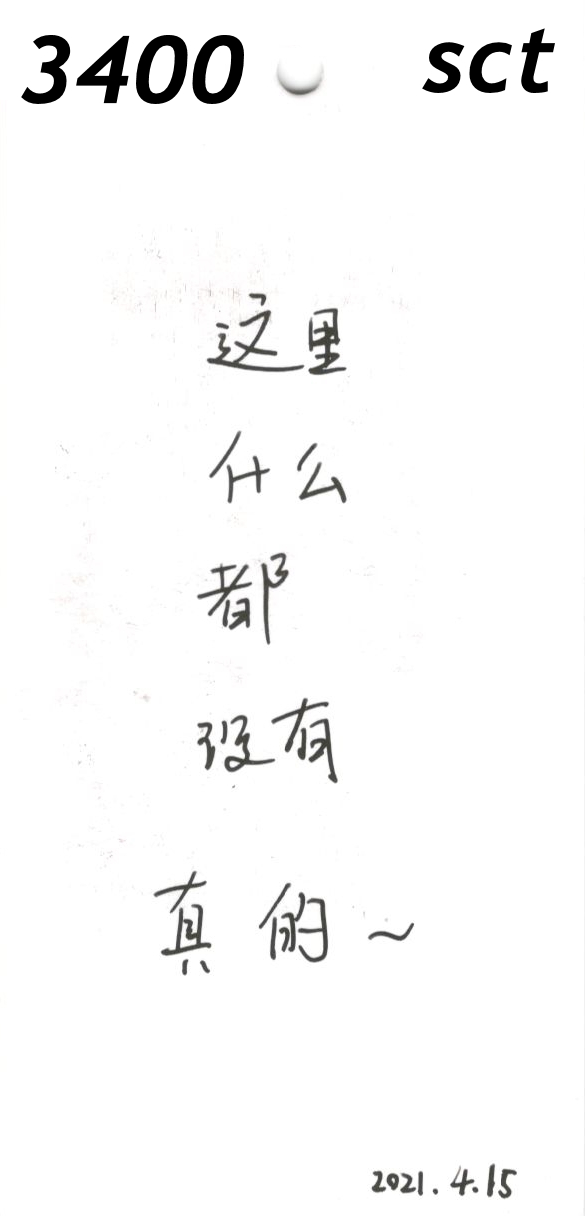 3400 sct
这里
什么
都
没有
真的~
2021.4.15